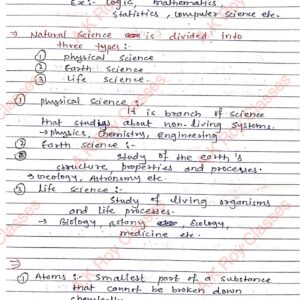 Ex:- Logic, mathematics,
statistics, computer science etc.
→ Natural Science is divided into
three types:-
① physical science
② Earth science
③ Life science.
① physical science :-
It is branch of science
that studies about non-living systems.
→ physics, chemistry, engineering
② Earth science :-
Study of the earth's
structure, properties and processes.
Astronomy etc.
③ Life science :-
Study of living organisms
and life processes.
→ Biology, Botany Ecology,
medicine etc.
① Atoms :- Smallest part of a substance
that cannot be broken down
chemically
K Roy Classes